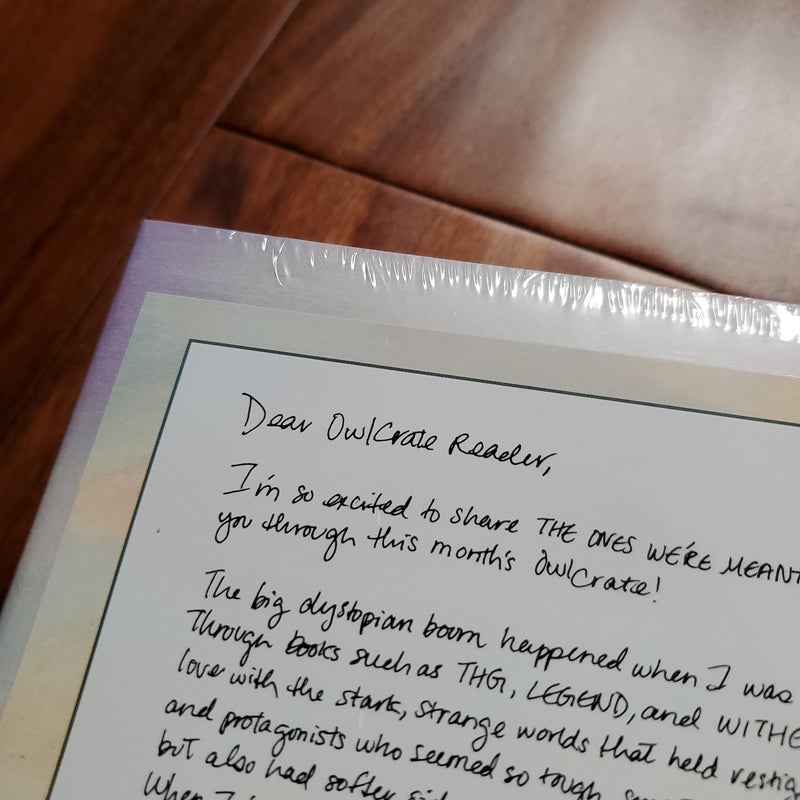 Dear OwlCrate Reader,
I'm so excited to share THE ONES WE'RE MEANT
you through this month's OwlCrate!
The big dystopian boom happened when I was
Through books such as THG, LEGEND, and WITHE
love with the stark, strange worlds that held vestig
and protagonists who seemed so tough
but also had softer
When I